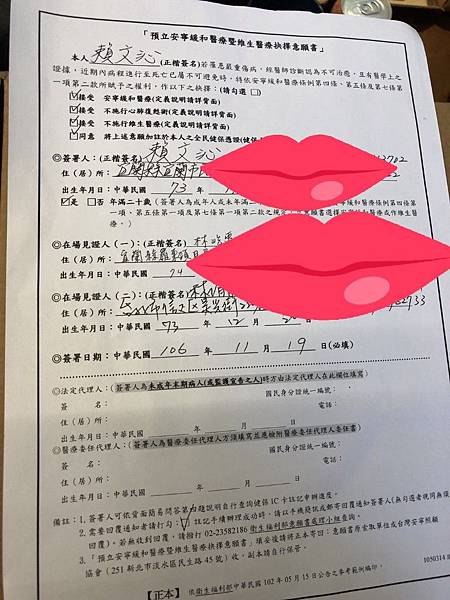 「預立安寧緩和醫療暨維生醫療抉擇意願書」
本人 賴文沁 (正楷簽名)若罹患嚴重傷病，經醫師診斷認為不可治癒，且有醫學上之
證據，近期內病程進行至死亡已屬不可避免時，特依安寧緩和醫療條例第四條、第五條及第七條第
一項第二款所賦予之權利，作以下之抉擇：(請勾選☑)
☑接受 安寧緩和醫療(定義說明請詳背面)
☑接受 不施行心肺復甦術(定義說明請詳背面)
☑接受 不施行維生醫療(定義說明請詳背面)
☑同意 將上述意願加註於本人之全民健保憑證(健保
◎簽署人：(正楷簽名) 賴文沁 3702
住(居)所： 宜蘭縣宜蘭市
出生年月日：中華民國 73 年
☑是 □否 年滿二十歲(簽署人為成年人或未年滿
一項、第五條第一項及第七條第一項第二款之規定
療。)
◎在場見證人(一)：(正楷簽名) 林
住(居)所： 宜蘭縣
出生年月日：中華民國 74
◎在場見證人(二)：(正楷簽名) 林
住(居)所：
933
出生年月日：中華民國 73 年 12 月
◎簽署日期：中華民國 106 年 11 月 19 日(必填)
◎法定代理人：(簽署人為未成年末期病人(或監護宣告之人)時方由法定代理人在此欄位填寫)
簽 名： 國民身分證統一編號：
住(居)所： 電話：
出生年月日：中華民國 年 月 日
◎醫療委任代理人：(簽署人為醫療委任代理人方須填寫並應檢附醫療委任代理人委任書)
簽 名： 國民身分證統一編號：
住(居)所： 電話：
出生年月日：中華民國 年 月 日
備註：1.簽署人可依背面簡易問答第 題說明自行查詢健保IC卡註記申辦進度。
2.需要回覆通知者請打勾：☑註記手續辦理成功時，請以手機簡訊或郵寄回覆通知簽署人(無勾選者視同無須
回覆)。若無收到回覆，請撥打 02-23582186 衛生福利部意願書處理小組查詢。
3.「預立安寧緩和醫療暨維生醫療抉擇意願書」填妥後請將正本寄回：意願書索取單位或台灣安寧照顧
協會(251新北市淡水區民生路45號)收，副本請自行保管。
1050314
【正本】 依衛生福利部中華民國102年05月15日公告之參考範例編印。